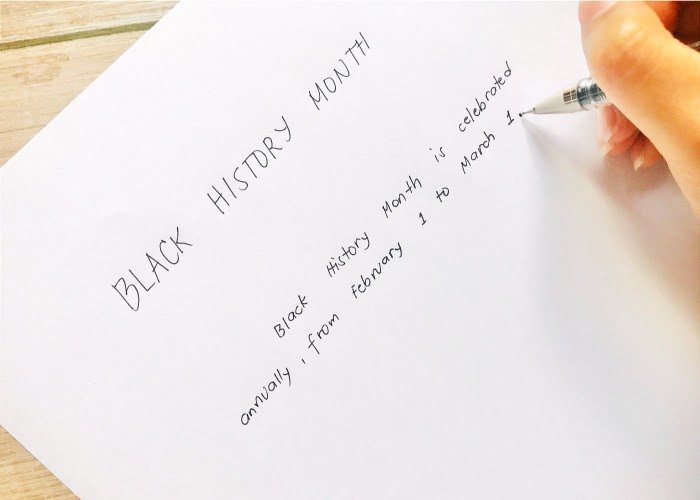 BLACK HISTORY MONTH
Black History Month is celebrated
annually, from February 1 to March 1.